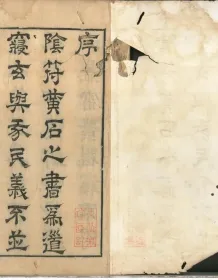 序
陰符黃石之書爲道
玄與民義不並